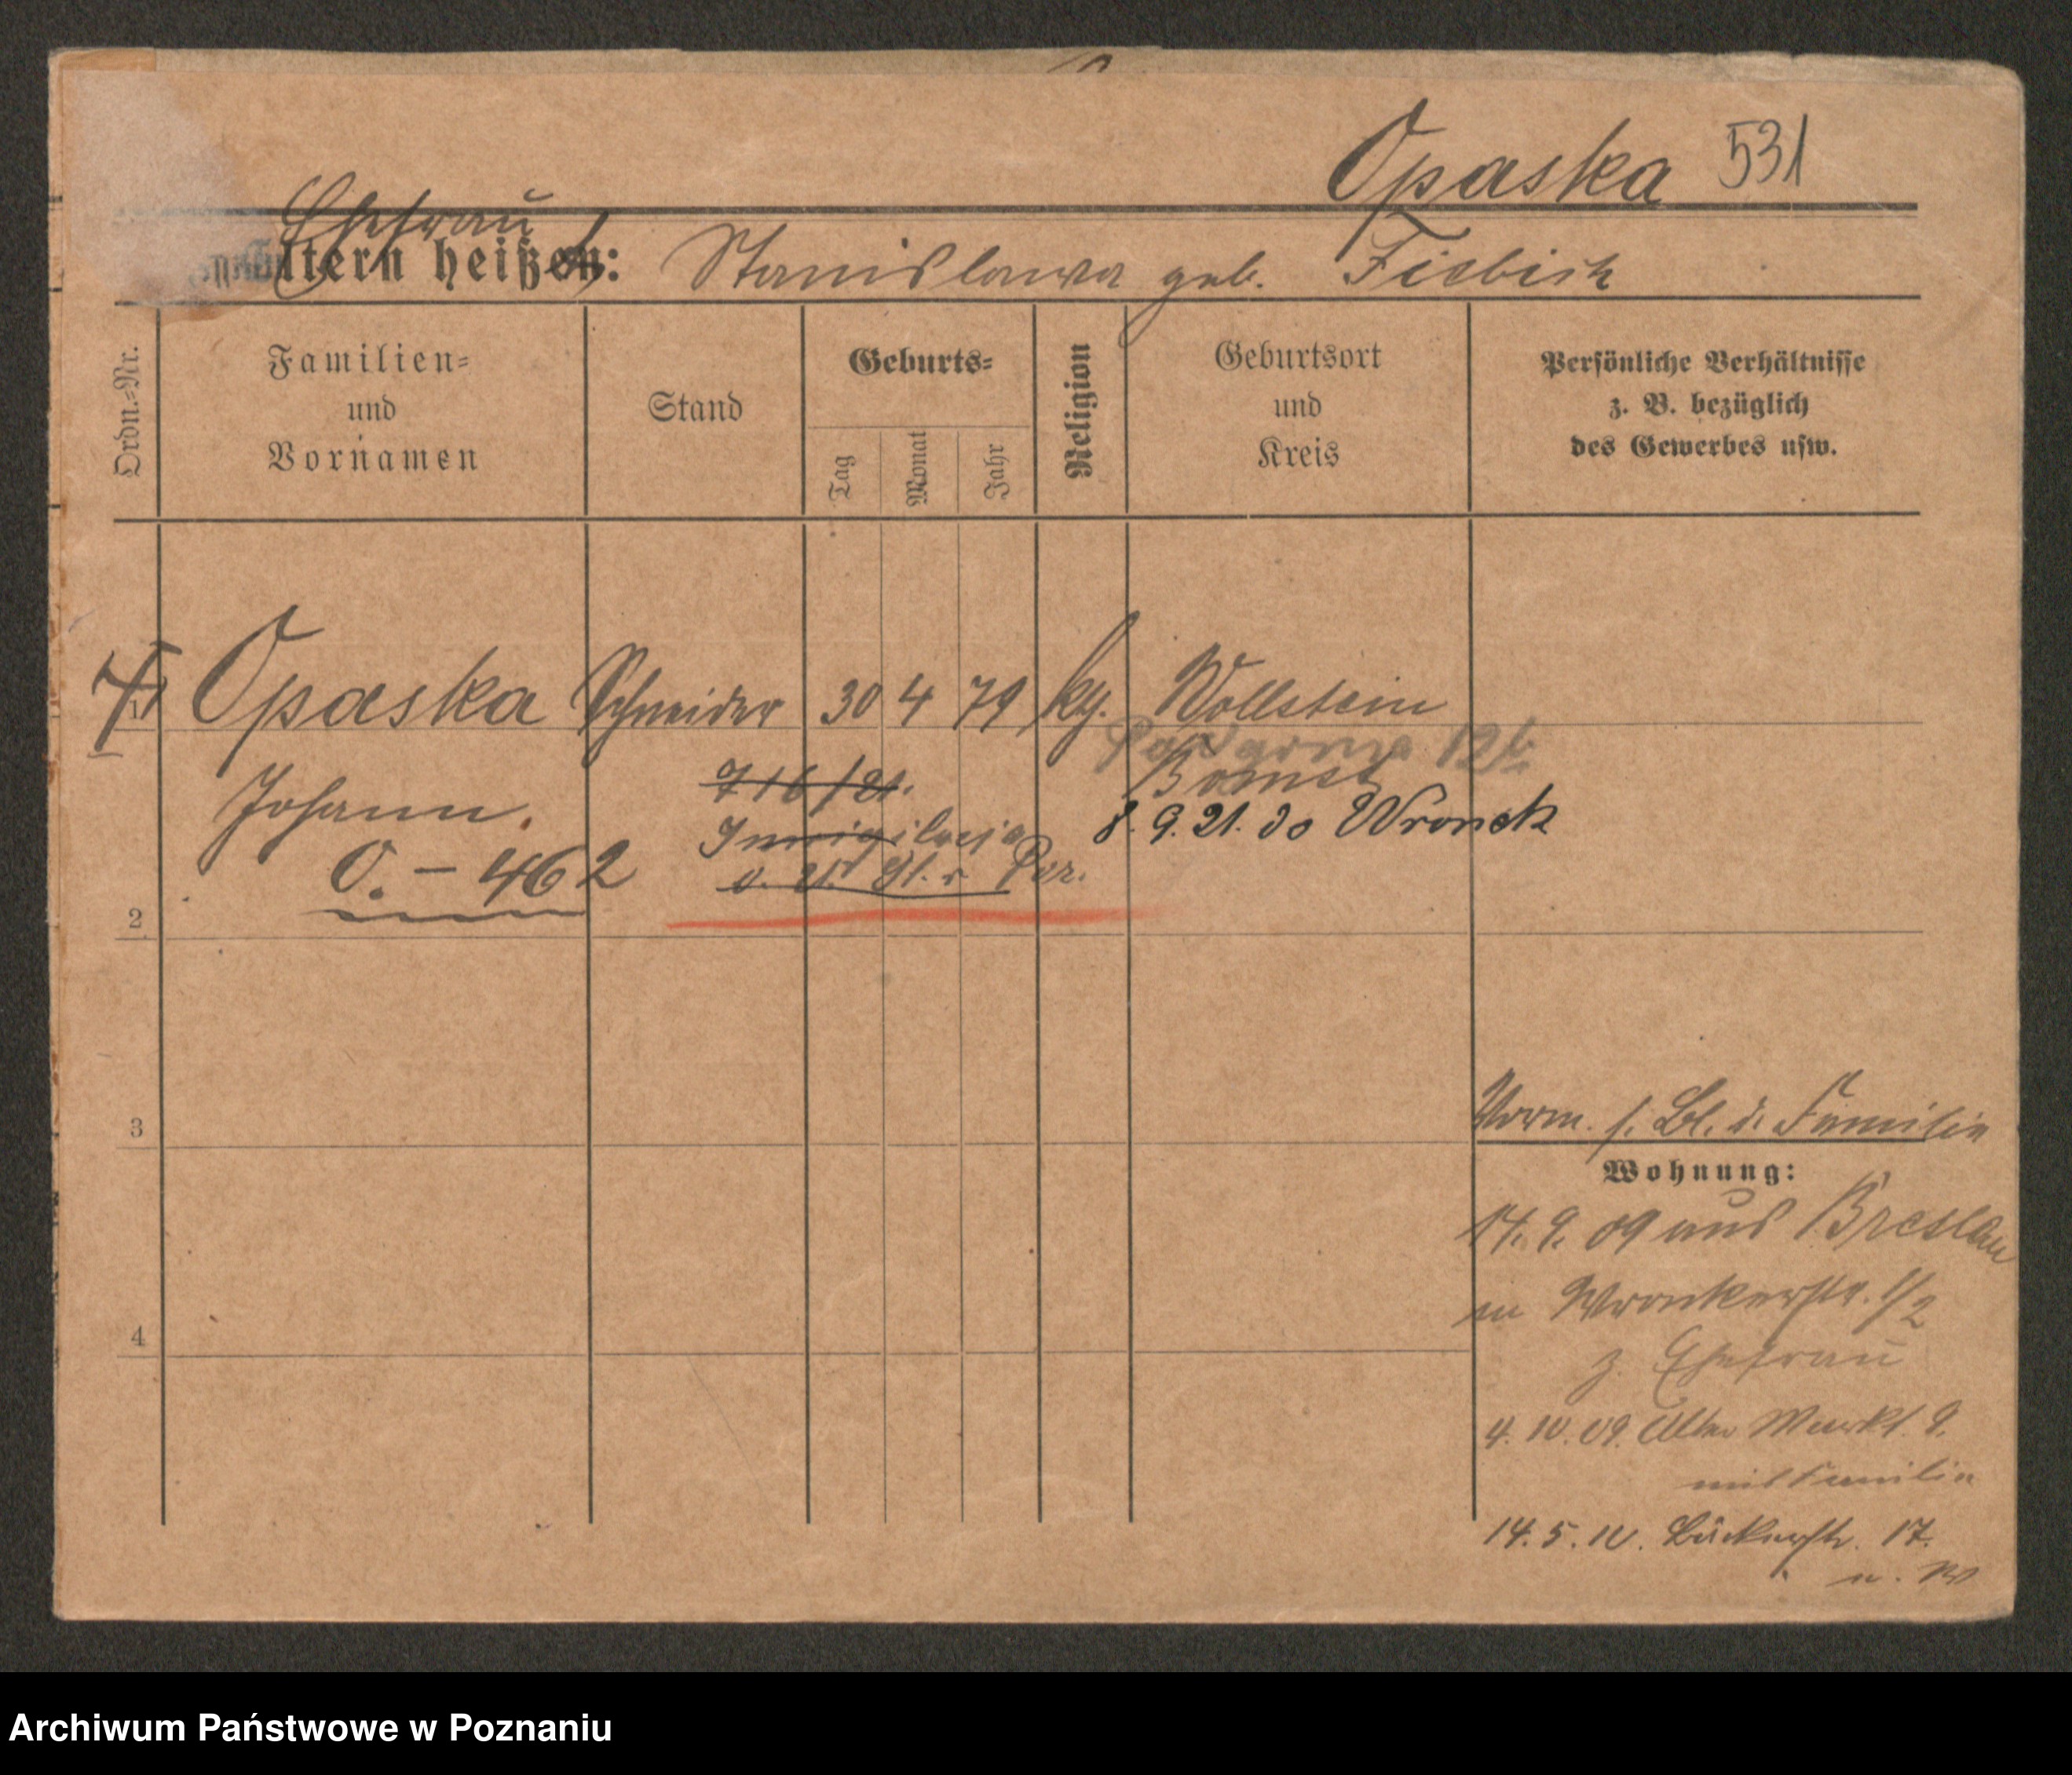 Opaska 531
Ehefrau
ltern heißen: Stanislawa geb. Fiebich
Ordn.-Nr.
Familien-
und
Vornamen
Stand
Geburts-
Tag
Monat
Jahr
Religion
Geburtsort
und
Kreis
Persönliche Verhältnisse
z. B. bezüglich
des Gewerbes usw.
1 Opaska Schneider 30 4 79 kth. Wollstein
Johann. 716/21. Bomst
8. 9. 21. do Wronek
O. - 462
2
3
4
Verm. s. Bl. d. Familie
Wohnung:
14. 9. 09 aus Breslau
Wronkerstr. 1/2
z. Ehefrau
4. 10. 09. Alter Markt 9.
mit Familie
14. 5. 10. Bäckerstr. 17.
Archiwum Państwowe w Poznaniu